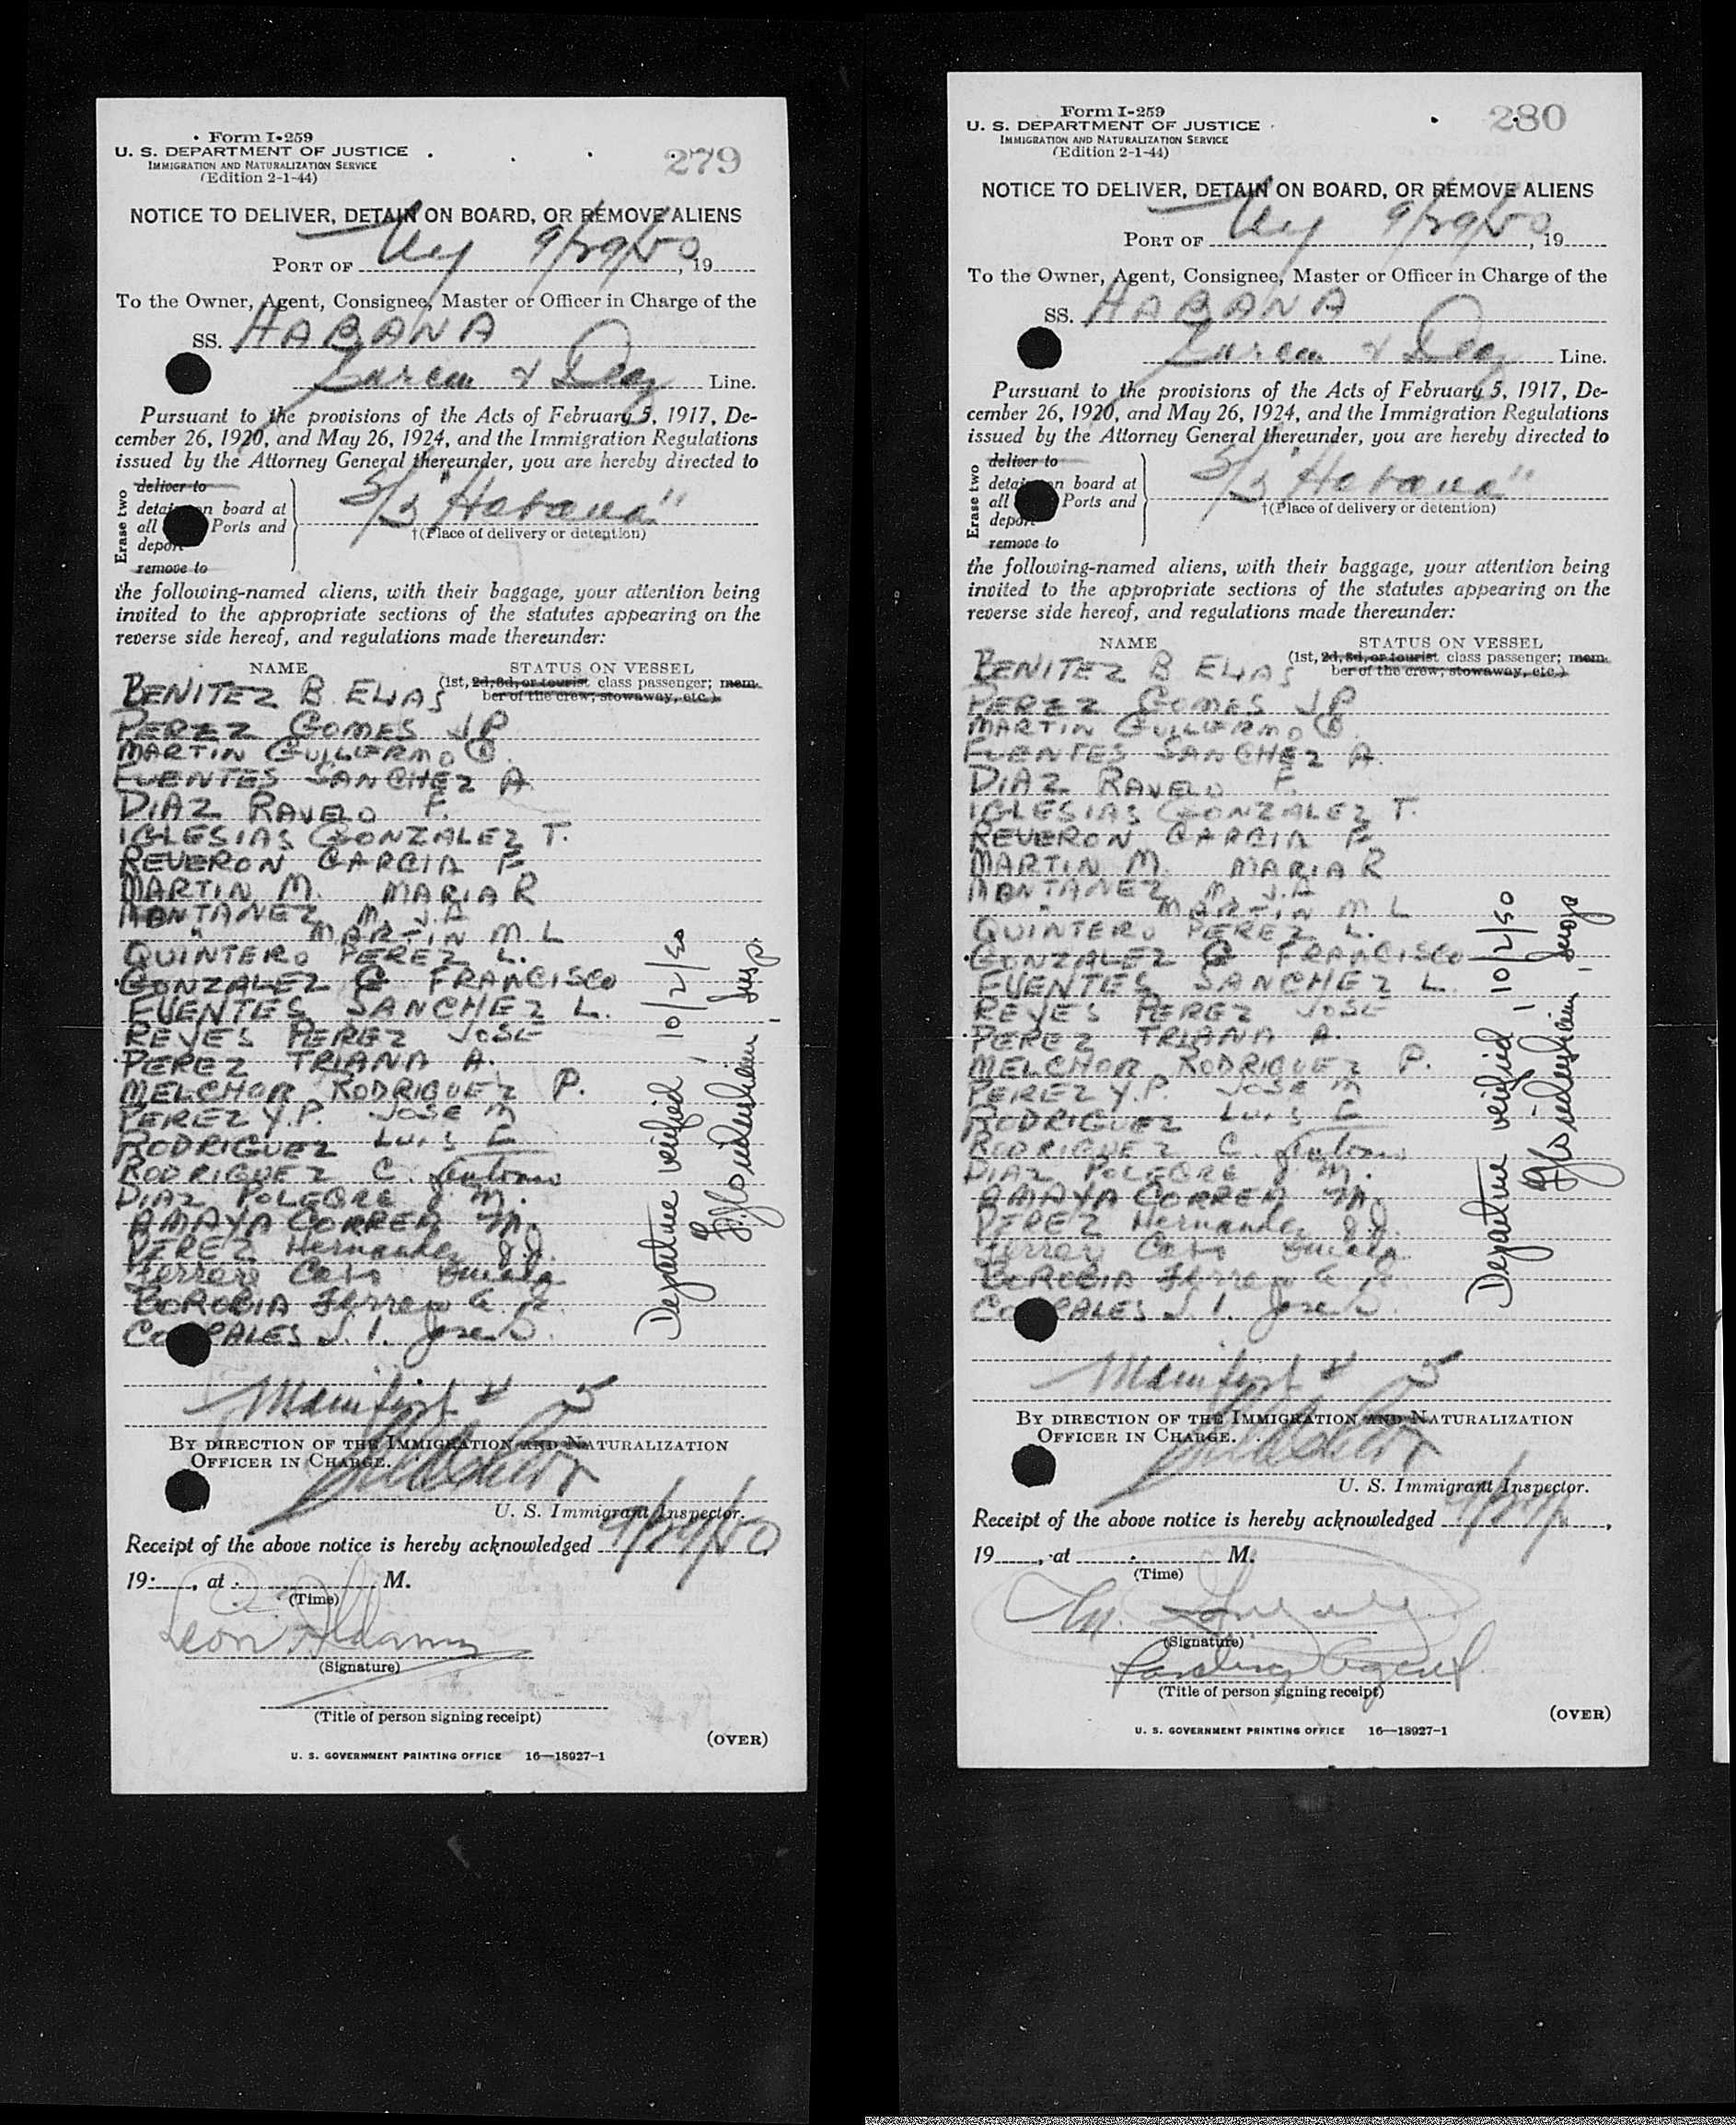 Form I-259
U. S. DEPARTMENT OF JUSTICE
IMMIGRATION AND NATURALIZATION SERVICE
(Edition 2-1-44)
279
NOTICE TO DELIVER, DETAIN ON BOARD, OR REMOVE ALIENS
PORT OF NY 9/29/50, 19
To the Owner, Agent, Consignee, Master or Officer in Charge of the
SS. HABANA
Garcia & Diaz Line.
Pursuant to the provisions of the Acts of February 5, 1917, De-
cember 26, 1920, and May 26, 1924, and the Immigration Regulations
issued by the Attorney General thereunder, you are hereby directed to
Erase two
deliver to
detain on board at
all Ports and
deport
remove to
S/S "Habana"
†(Place of delivery or detention)
the following-named aliens, with their baggage, your attention being
invited to the appropriate sections of the statutes appearing on the
reverse side hereof, and regulations made thereunder:
NAME STATUS ON VESSEL
(1st, 2d, 3d, or tourist class passenger; mem-
ber of the crew, stowaway, etc.)
BENITEZ B ELIAS
PEREZ GOMES J P
MARTIN GUILLERMO
FUENTES SANCHEZ A.
DIAZ RAVELO F.
IGLESIAS GONZALEZ T.
REVERON GARCIA F
MARTIN M. MARIA R
MONTANEZ M. J.A
" MARTIN M L
QUINTERO PEREZ L.
GONZALEZ G FRANCISCO
FUENTES SANCHEZ L.
REYES PEREZ JOSE
PEREZ TRIANA A.
MELCHOR RODRIGUEZ P.
PEREZ Y.P. JOSE M
RODRIGUEZ Luis E
RODRIGUEZ C. Antonio
DIAZ POLEGRE J M.
AMAYA CORREA M.
PEREZ Hernandez J.J.
Ferrer
BOROBIA Ferrer
CORRALES J. I. Jose
Departure verified, 10/2/50
Insp.
Manifest # 5
BY DIRECTION OF THE IMMIGRATION AND NATURALIZATION
OFFICER IN CHARGE.
U. S. Immigrant Inspector.
Receipt of the above notice is hereby acknowledged 9/29/50,
19, at M.
(Time)
Leon Adams
(Signature)
(Title of person signing receipt)
(OVER)
U. S. GOVERNMENT PRINTING OFFICE 16—18927-1
Form I-259
U. S. DEPARTMENT OF JUSTICE
IMMIGRATION AND NATURALIZATION SERVICE
(Edition 2-1-44)
280
NOTICE TO DELIVER, DETAIN ON BOARD, OR REMOVE ALIENS
PORT OF NY 9/29/50, 19
To the Owner, Agent, Consignee, Master or Officer in Charge of the
SS. HABANA
Garcia & Diaz Line.
Pursuant to the provisions of the Acts of February 5, 1917, De-
cember 26, 1920, and May 26, 1924, and the Immigration Regulations
issued by the Attorney General thereunder, you are hereby directed to
Erase two
deliver to
detain on board at
all Ports and
deport
remove to
S/S "Habana"
†(Place of delivery or detention)
the following-named aliens, with their baggage, your attention being
invited to the appropriate sections of the statutes appearing on the
reverse side hereof, and regulations made thereunder:
NAME STATUS ON VESSEL
(1st, 2d, 3d, or tourist class passenger; mem-
ber of the crew, stowaway, etc.)
BENITEZ B ELIAS
PEREZ GOMES J P
MARTIN GUILLERMO
FUENTES SANCHEZ A.
DIAZ RAVELO F.
IGLESIAS GONZALEZ T.
REVERON GARCIA F
MARTIN M. MARIA R
MONTANEZ M. J.A
" MARTIN M L
QUINTERO PEREZ L.
GONZALEZ G FRANCISCO
FUENTES SANCHEZ L.
REYES PEREZ JOSE
PEREZ TRIANA A.
MELCHOR RODRIGUEZ P.
PEREZ Y.P. JOSE M
RODRIGUEZ Luis E
RODRIGUEZ C. Antonio
DIAZ POLEGRE J M.
AMAYA CORREA M.
PEREZ Hernandez J.J.
Ferrer
BOROBIA Ferrer
CORRALES J. I. Jose
Departure verified, 10/2/50
Insp
Manifest # 5
BY DIRECTION OF THE IMMIGRATION AND NATURALIZATION
OFFICER IN CHARGE.
U. S. Immigrant Inspector.
Receipt of the above notice is hereby acknowledged 9/29/,
19, at M.
(Time)
(Signature)
Landing Agent
(Title of person signing receipt)
(OVER)
U. S. GOVERNMENT PRINTING OFFICE 16—18927-1